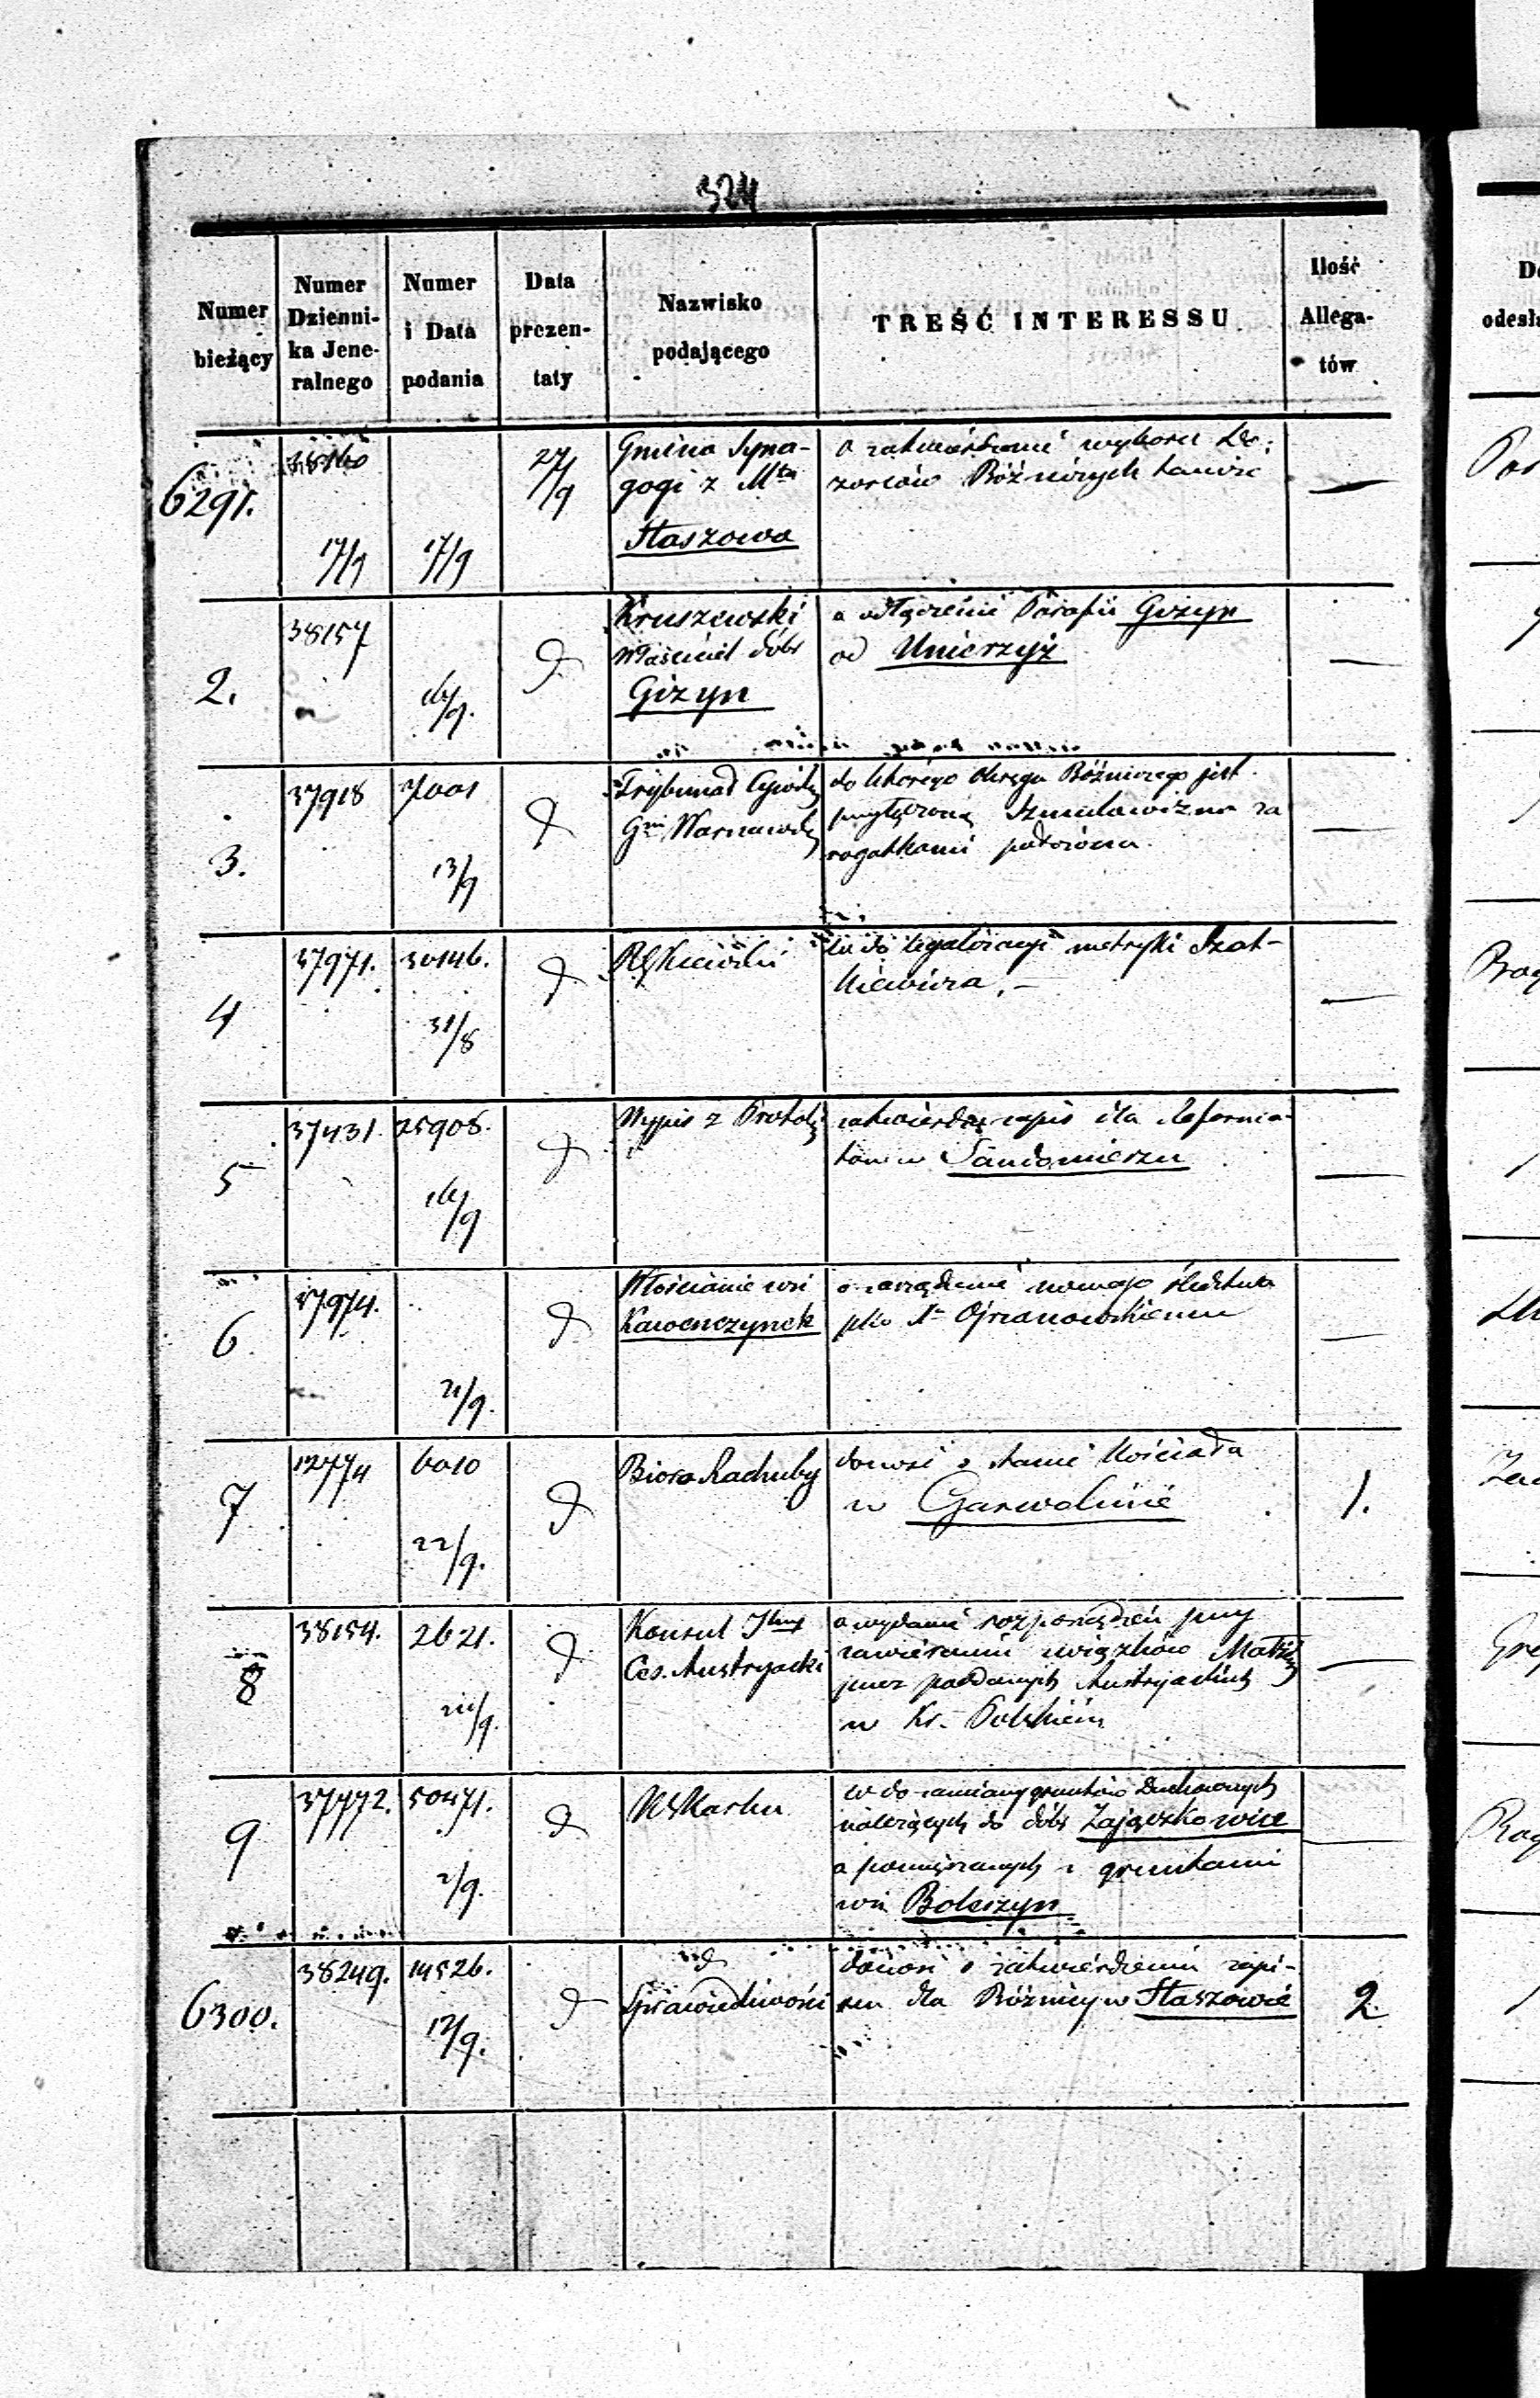 324
Numer bieżący
Numer Dzienni-ka Jene-ralnego
Numer i Data podania
Data prezen-taty
Nazwisko podającego
TREŚĆ INTERESSU
Ilość Allega-tów
6291.
38160
17/9
17/9
27/9
Gmina Syna-
gogi z Mta
Staszowa
o zatwierdzenie wyboru Do-
zorców Bóźniczych tamże
—
2.
38157
16/9.
d
Kruszewski
właściciel dóbr
Gizyn
o odłączenie Parafii Gizyn
od Unierzyż
—
3.
37918
7001
13/9
d
Trybunał Cywilny
Gnii Warszawsk
do którego Okręgu Bóźniczego jest
przyłączoną Szmulowizna za
rogatkami położona.
—
4
37971.
30146.
31/8
d
R G Kiecówski
w do legalizacyi metryki Szat-
kiewicza. —
—
5
37431.
25908.
16/9
d
Wypis z Protok
zatwierdza zapis dla Reforma-
tów w Sandomierzu
—
6
37974.
21/9.
d
Włościanie wsi
Kawenczynek
o zarządzenie nowego śledztwa
plko Xa Ojrzanowskiemu
—
7
12774
6010
22/9.
d
Bióro Rachuby
donosi o stanie Kościoła
w Garwolinie
1.
8
38154.
2621.
d
Konsul Jlny
Ces. Austryacki
o wydanie rozporządzeń przy
zawieraniu związków Małż
przez poddanych Austryackich
w Kr. Polskiém
—
9
37772.
50471.
2/9.
d
w do zamiany gruntów Duchownych
należących do dóbr Zajączkowice
a pomięszanych z gruntami
wsi Boleszyn
—
6300.
38249.
14526.
12/9.
d
d
Sprawiedliwości
donosi o zatwierdzeniu zapi-
su dla Bóżnicy w Staszowie
2